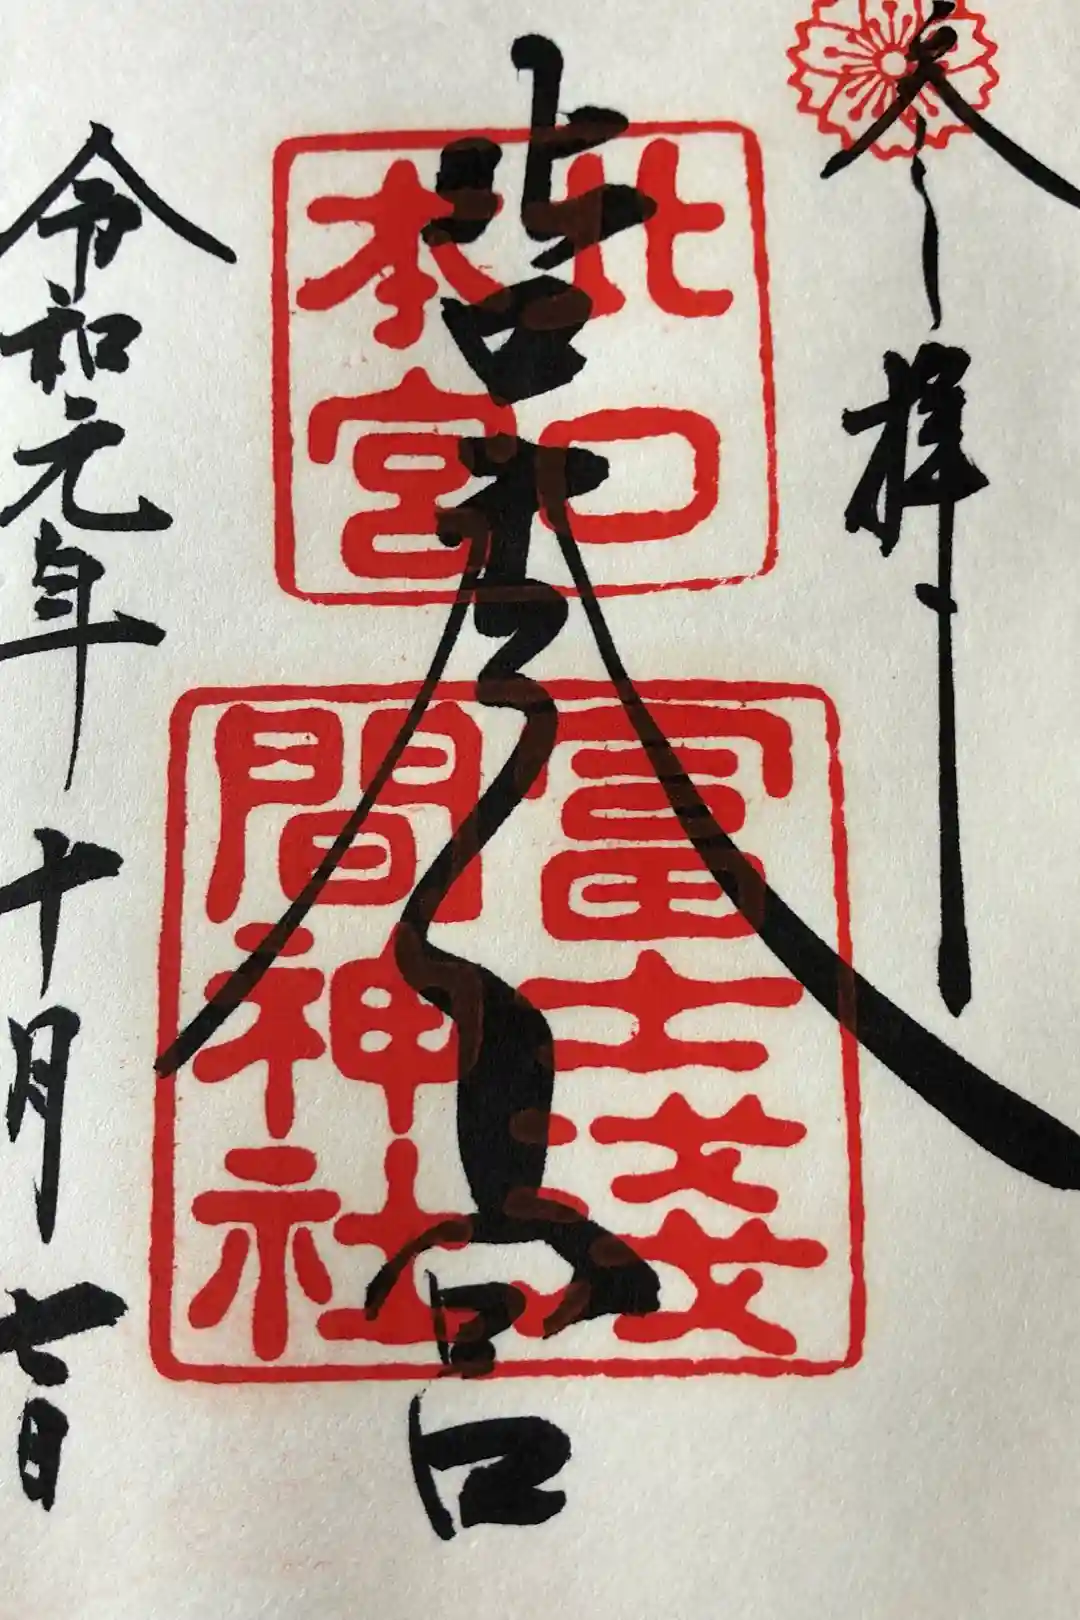 奉拝
北口本宮
北口
本宮
冨士淺
間神社
令和元年十月七日